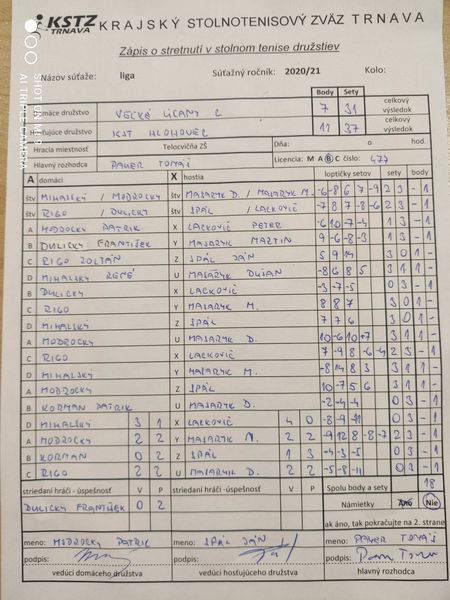 KSTZ TRNAVA KRAJSKÝ STOLNOTENISOVÝ ZVÄZ TRNAVA
Zápis o stretnutí v stolnom tenise družstiev
Názov súťaže: liga Súťažný ročník: 2020/21 Kolo:
Body Sety
Domáce družstvo VEĽKÉ ÚĽANY C 7 31 celkový výsledok
Hosťujúce družstvo KST HLOHOVEC 11 37 celkový výsledok
Hracia miestnosť Telocvičňa ZŠ Dňa: o hod.
Hlavný rozhodca PAVER TOMÁŠ Licencia: M A B C číslo: 477
A domáci X hostia loptičky setov sety body
štv MIHALSKÝ / MODROCKY štv MAJARYK D. / MAJARYK M. -6 -8 6 7 -9 2 3 - 1
štv RIGO / DULICKY štv SPÁL / LACKOVIČ -7 8 7 -8 -6 2 3 - 1
A MODROCKY PATRIK X LACKOVIČ PETER -6 10 -7 -4 1 3 - 1
B DULICKY FRANTIŠEK Y MAJARYK MARTIN 9 -6 -8 -3 1 3 - 1
C RIGO ZOLTÁN Z SPÁL JÁN 5 9 14 3 0 1 -
D MIHALSKY RENÉ U MAJARYK DUŠAN -8 6 8 5 3 1 1 -
B DULICKÝ X LACKOVIČ -3 -7 -5 0 3 - 1
C RIGO Y MAJARYK M. 8 8 7 3 0 1 -
D MIHALSKÝ Z SPÁL 7 7 6 3 0 1 -
A MODROCKY U MAJARYK D. 10 -6 10 +7 3 1 1 -
C RIGO X LACKOVIČ 7 -9 8 -6 -4 2 3 - 1
D MIHALSKÝ Y MAJARYK M. -8 14 8 3 3 1 1 -
A MODROCKY Z SPÁL 10 -7 5 6 3 1 1 -
B KORMAN PATRIK U MAJARYK D. -2 -4 -4 0 3 - 1
D MIHALSKÝ 3 1 X LACKOVIČ 4 0 -8 -9 -11 0 3 - 1
A MODROCKY 2 2 Y MAJARYK M. 2 2 -9 12 8 -8 -7 2 3 - 1
B KORMAN 0 2 Z SPÁL 1 3 -4 -3 -5 0 3 - 1
C RIGO 2 2 U MAJARYK D. 2 2 -5 -8 -11 0 3 - 1
striedaní hráči - úspešnosť V P striedaní hráči -úspešnosť V P Spolu body a sety 18
DULICKY FRANTIŠEK 0 2 Námietky Áno Nie
ak áno, tak pokračujte na 2. strane
meno: MODROCKY PATRIK meno: SPÁL JÁN meno: PAVER TOMÁŠ
podpis: podpis: podpis:
vedúci domáceho družstva vedúci hosťujúceho družstva hlavný rozhodca